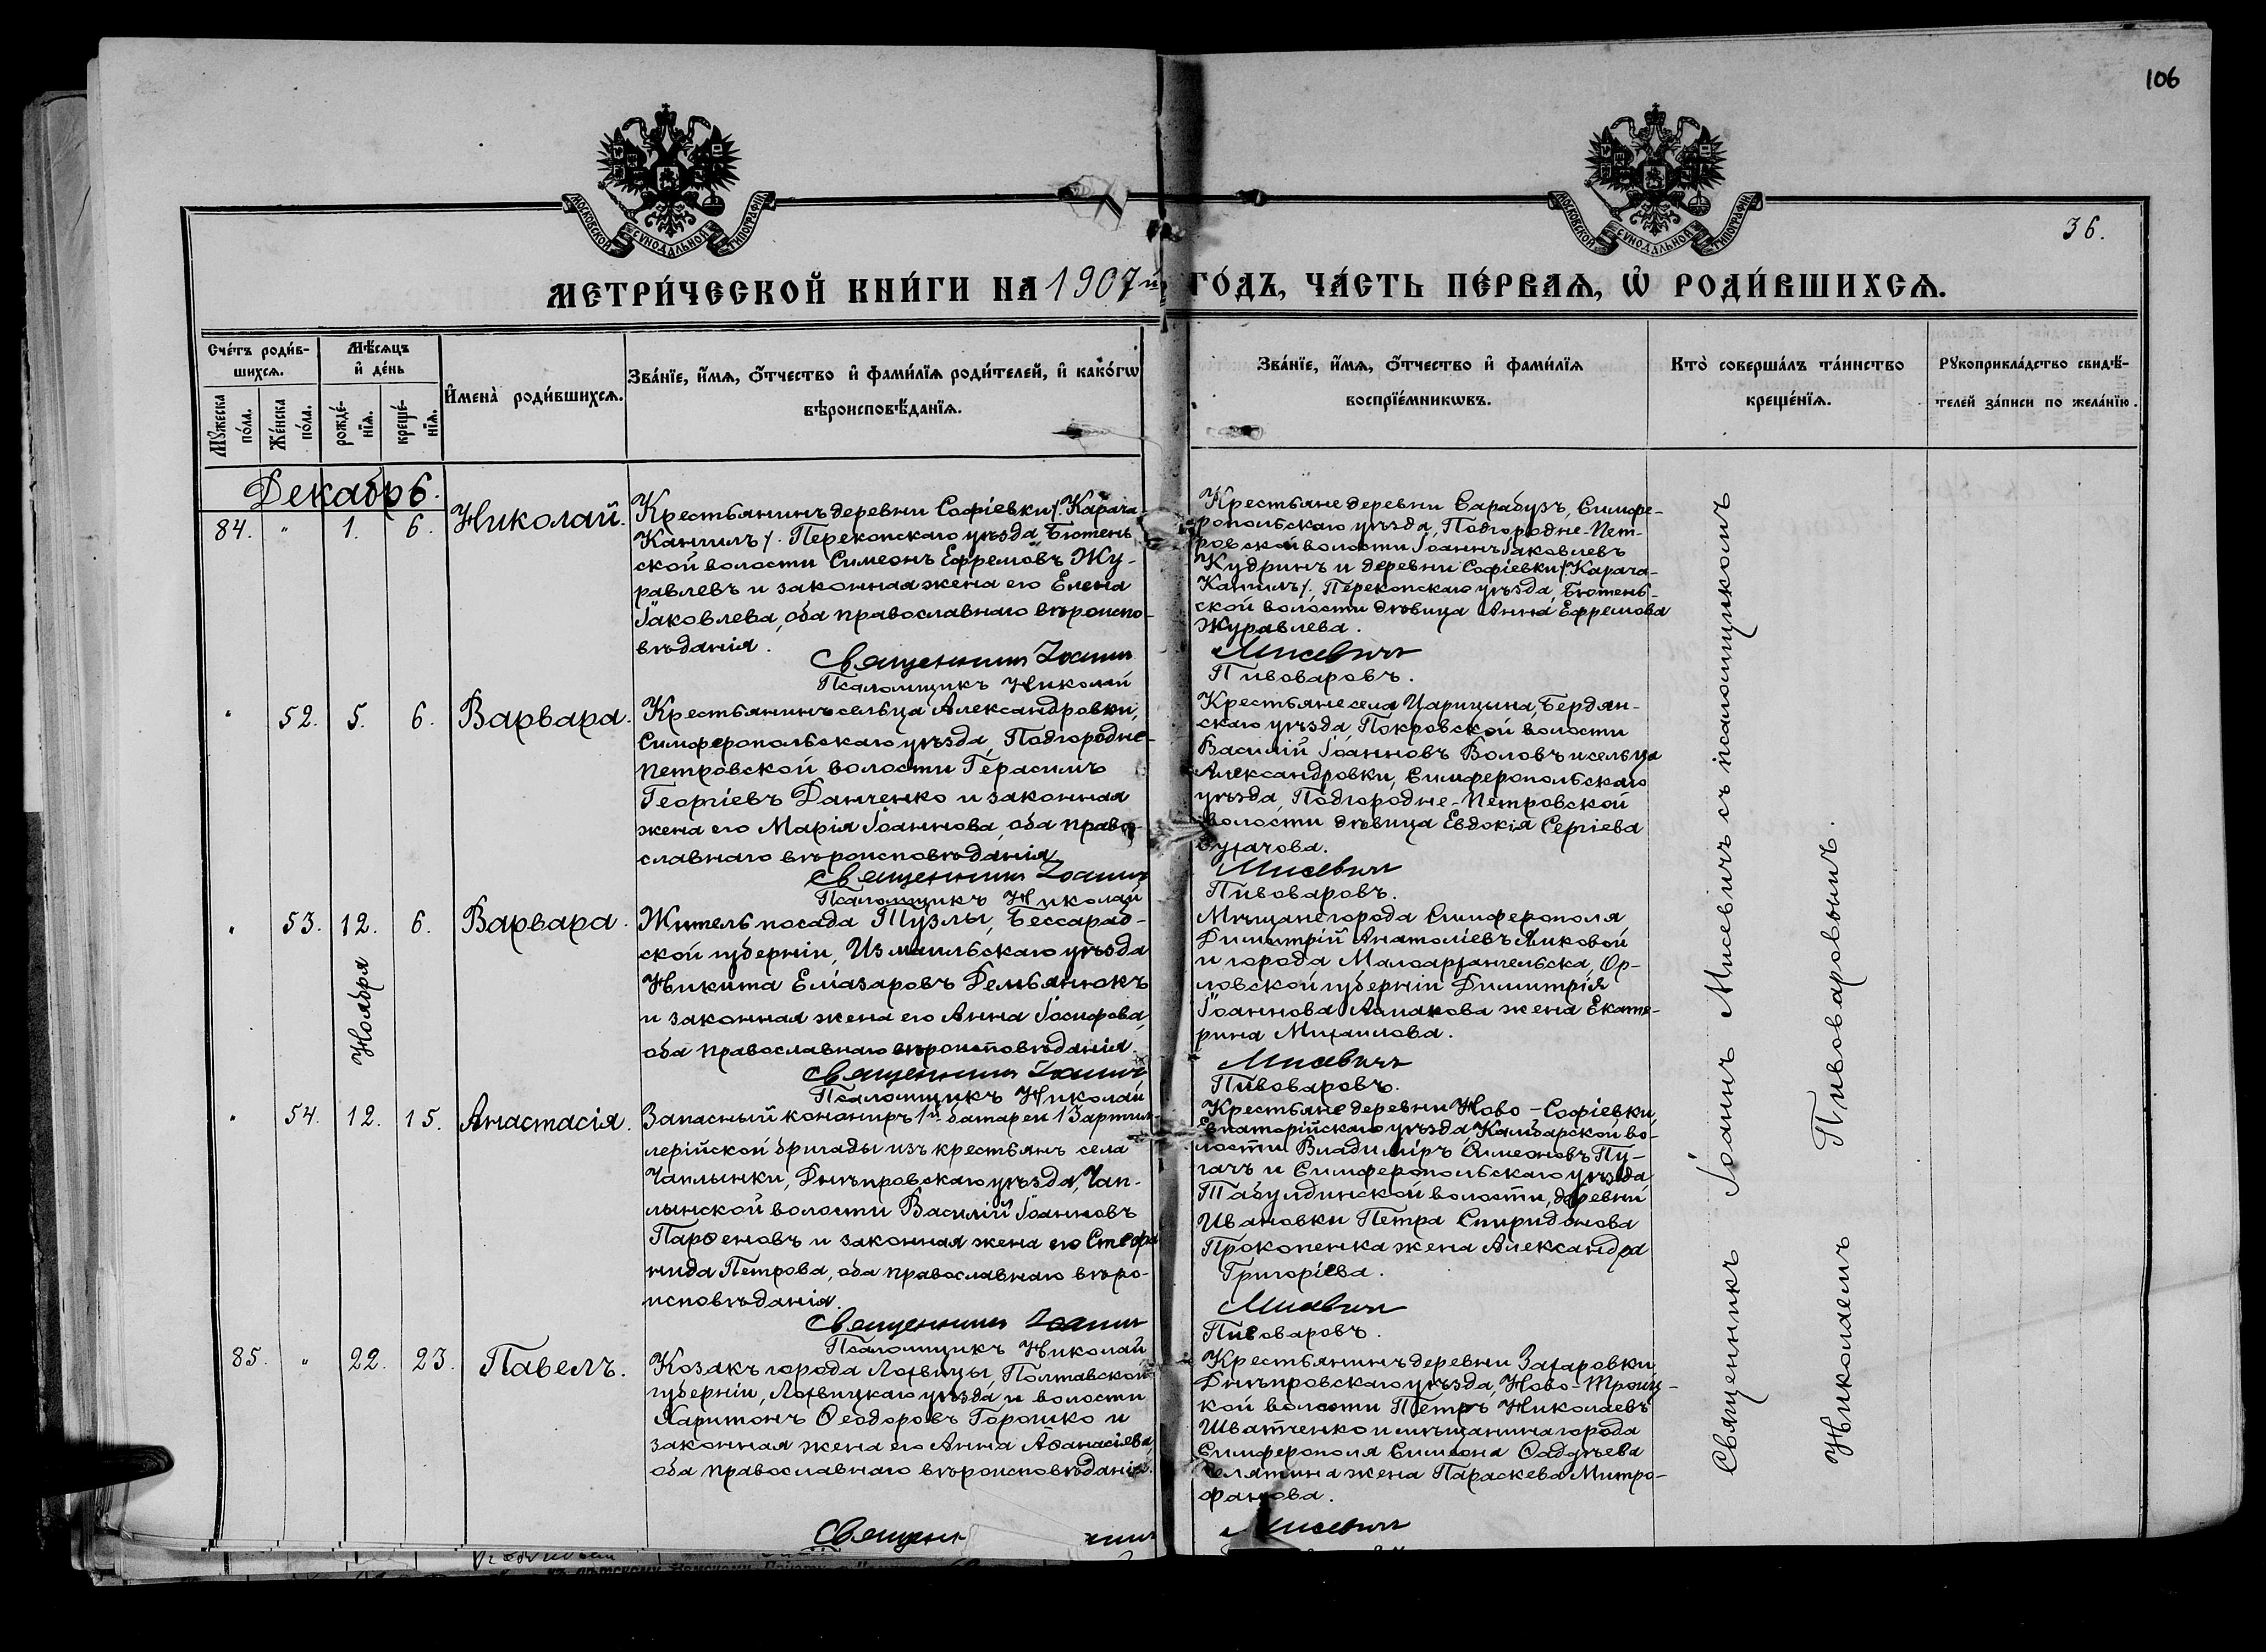 106
МОСКОВСКОЙ СѴНОДАЛЬНОЙ ТИПОГРАФІИ
МОСКОВСКОЙ СѴНОДАЛЬНОЙ ТИПОГРАФІИ
36.
МЕТРИ́ЧЕСКОЙ КНИ́ГИ НА 1907й ГО́ДЪ, ЧА́СТЬ ПЕ́РВАѦ, Ѽ РОДИ́ВШИХСѦ.
Сче́тъ роди́в-
шихсѧ.
Мꙋ́жеска по́ла.
Же́нска по́ла.
Мѣ́сѧцъ
и҆ де́нь
рожде́-
нїѧ.
креще́-
нїѧ.
И҆мена̀ роди́вшихсѧ.
Зва́нїе, и҆́мѧ, ѻ҆́тчество и҆ фами́лїѧ роди́телей, и҆ како́гѡ
вѣроисповѣ́данїѧ.
Зва́нїе, и҆́мѧ, ѻ҆́тчество и҆ фами́лїѧ
воспрїе́мникѡвъ.
Кто̀ соверша́лъ та́инство
креще́нїѧ.
Рꙋкоприкла́дство свидѣ́-
телей за́писи по жела́нїю.
Декабрь.
84. " 1. 6. Николай.
Крестьянинъ деревни Софіевки /. Карача
Кангилъ /. Перекопскаго уѣзда Бютень
ской волости Симеонъ Ефремовъ Жу-
равлевъ и законная жена его Елена
Іаковлева, оба православнаго вѣроиспо-
вѣданія.
Священникъ Іоаннъ
Псаломщикъ Николай
Крестьяне деревни Сарабузъ, Симфе-
ропольскаго уѣзда, Подгородне-Пет-
ровской волости Іоаннъ Іаковлевъ
Кудринъ и деревни Софіевки /. Карача-
Кангилъ /. Перекопскаго уѣзда, Бютень-
ской волости дѣвица Анна Ефремова
Журавлева.
Мисевичъ
Пивоваровъ.
" 52. 5. 6. Варвара.
Крестьянинъ сельца Александровки,
Симферопольскаго уѣзда, Подгородне-
Петровской волости Герасимъ
Георгіевъ Данченко и законная
жена его Марія Іоаннова, оба право-
славнаго вѣроисповѣданія.
Священникъ Іоаннъ
Псаломщикъ Николай
Крестьяне села Царицына, Бердян-
скаго уѣзда, Покровской волости
Василій Іоанновъ Воловъ и сельца
Александровки, Симферопольскаго
уѣзда, Подгородне-Петровской
волости дѣвица Евдокія Сергіева
Мисевичъ
Пивоваровъ.
" 53. 12. 6. Варвара.
Ноября
Житель посада Тузлы, Бессараб-
ской губерніи, Измаильскаго уѣзда
Никита Еліазаровъ Демьянюкъ
и законная жена его Анна Іосифова,
оба православнаго вѣроисповѣданія.
Священникъ Іоаннъ
Псаломщикъ Николай
Мѣщане города Симферополя
Димитрій Анатоліевъ
и города Малоархангельска, Ор-
ловской губерніи Димитрія
Іоаннова жена Екате-
рина Михаилова.
Мисевичъ
Пивоваровъ.
" 54. 12. 15. Анастасія.
Запасный конониръ 1й батареи 13 артил-
лерійской бригады изъ крестьянъ села
Чаплынки, Днѣпровскаго уѣзда, Чап-
лынской волости Василій Іоанновъ
Парѳеновъ и законная жена его Стефа
нида Петрова, оба православнаго вѣро-
исповѣданія.
Священникъ Іоаннъ
Псаломщикъ Николай
Крестьяне деревни Ново-Софіевки,
Евпаторійскаго уѣзда, Камбарской во-
лости Владиміръ Симеоновъ Пу-
гачъ и Симферопольскаго уѣзда
Табулдинской волости, деревни
Ивановки Петра Спиридонова
Прокопенка жена Александра
Григоріева.
Мисевичъ
Пивоваровъ.
85. " 22. 23. Павелъ.
Козакъ города Лохвицы, Полтавской
губерніи, Лохвицкаго уѣзда, и волости
Харитонъ Ѳеодоровъ Горошко и
законная жена его Анна Аѳанасіева,
оба православнаго вѣроисповѣданія.
Крестьянинъ деревни Захаровки,
Днѣпровскаго уѣзда, Ново-Троиц-
кой волости Петръ Николаевъ
Шватченко и мѣщанина города
Симферополя Симеона Ѳаддѣева
жена Параскева Митро-
фанова.
Мисевичъ
Священникъ Іоаннъ Мисевичъ съ псаломщикомъ
Николаемъ Пивоваровымъ.